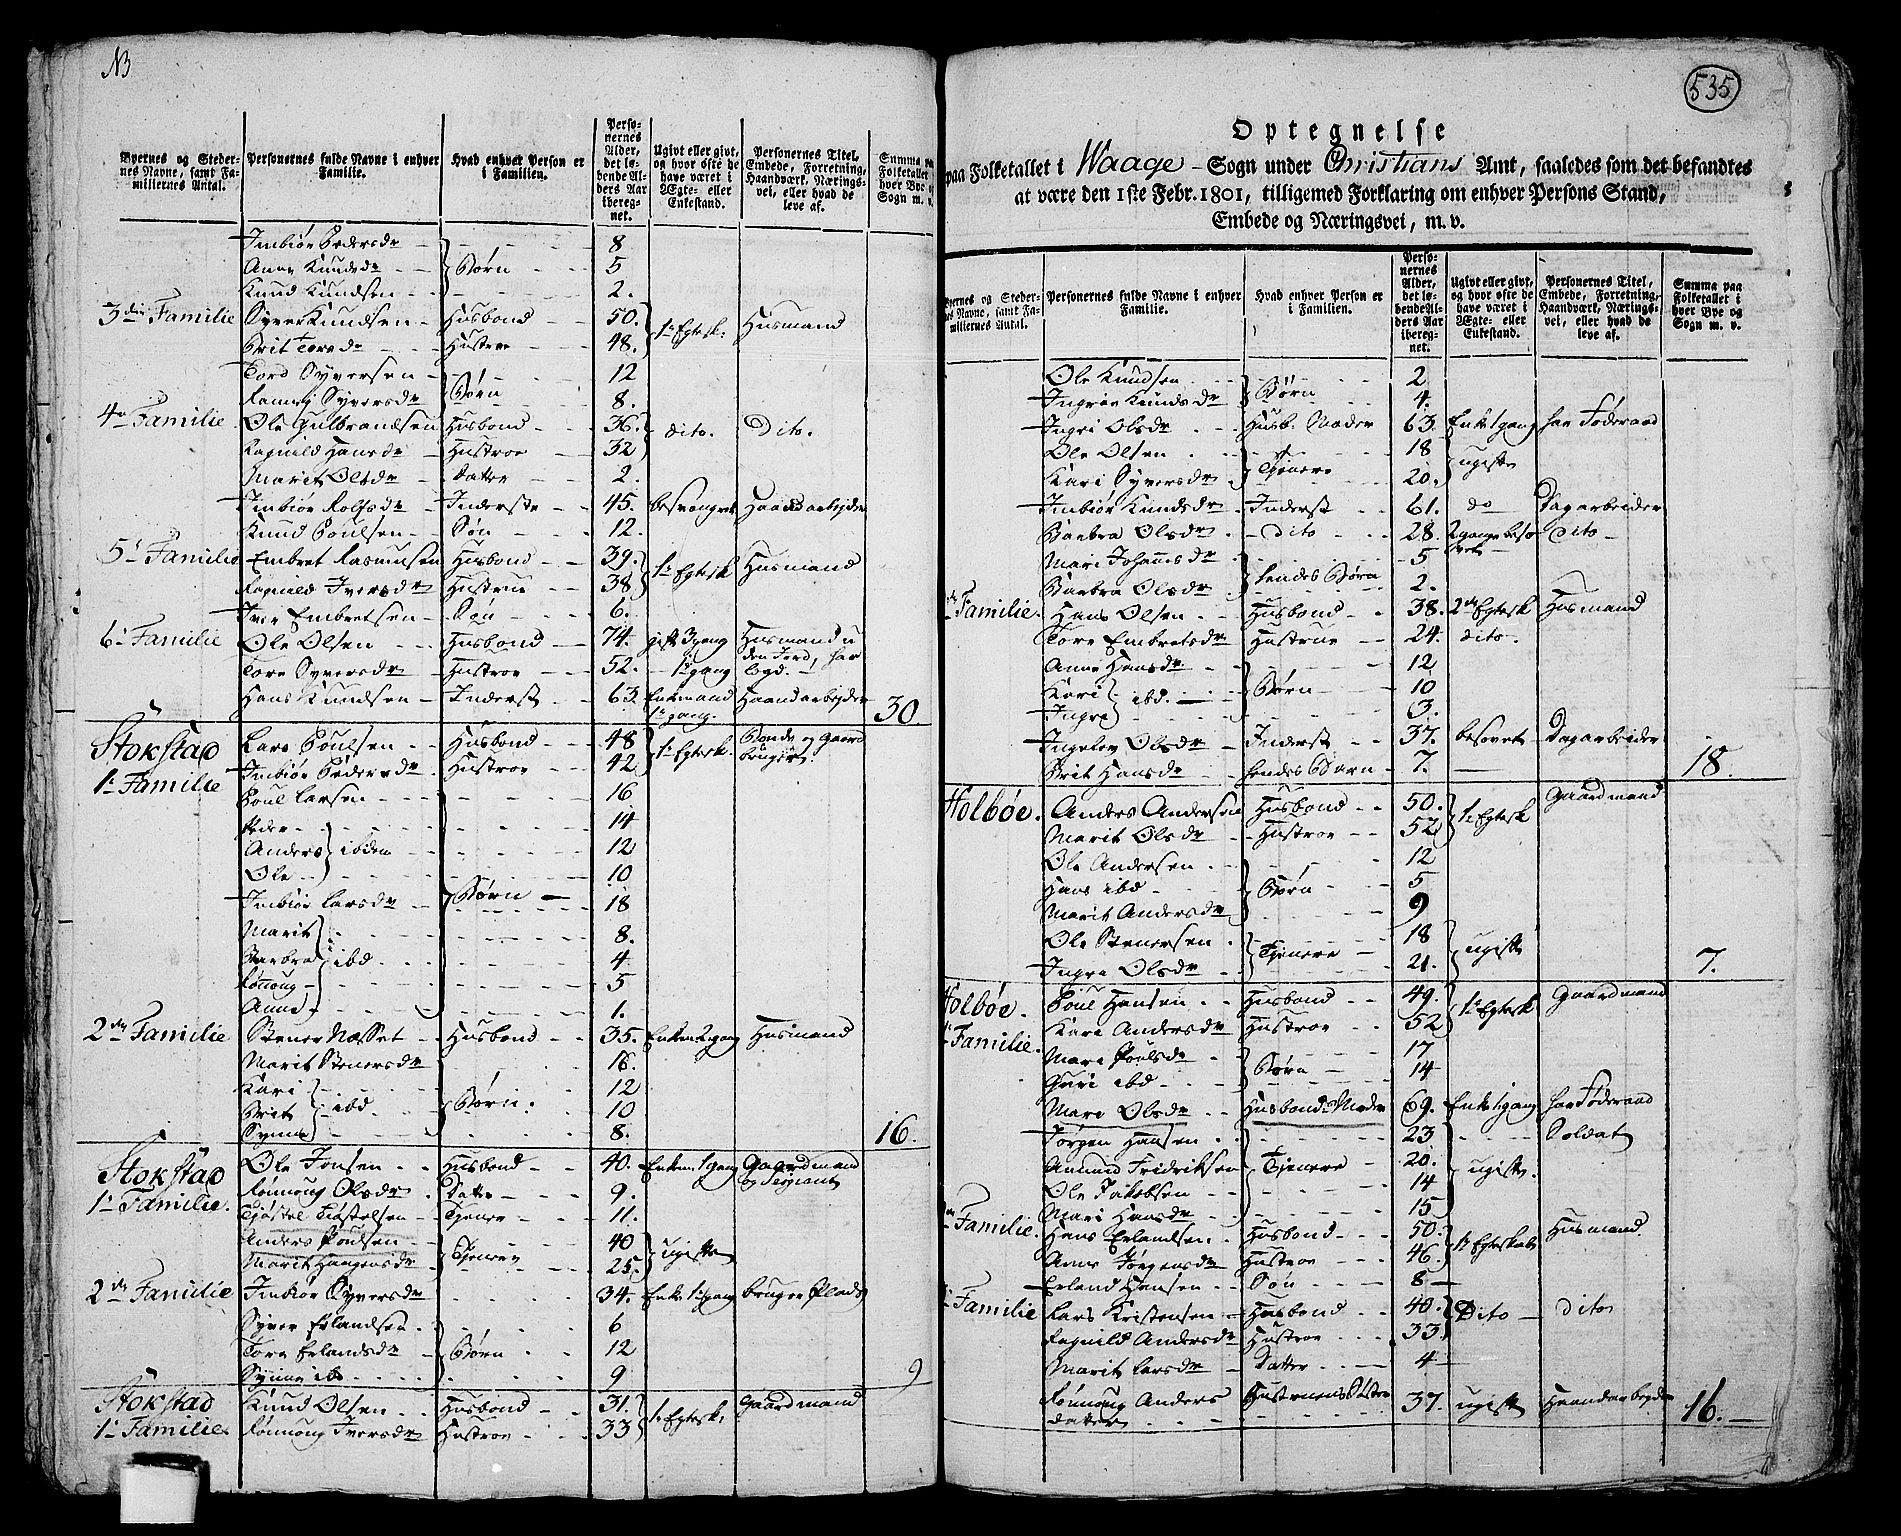 NB
Byernes og Stedernes Navne, samt Familiernes Antal.
Personernes fulde Navne i enhver Familie.
Hvad enhver Person er i Familien.
Personernes Alder, det løbende Alders Aar iberegnet.
Ugivt eller givt, og hvor ofte de have været i Ægte- eller Enkestand.
Personernes Titel, Embede, Forretning, Haandværk, Næringsvei, eller hvad de leve af.
Summa paa Folketallet i hver Bye og Sogn m. v.
Imbiør Pedersdr 8
Anne Knudsdr Børn 5
Knud Knudsen 2.
3die Familie Syver Knudsen Husbond 50. 1ste Egtesk. Husmand
Brit Toresdr Hustroe 48.
Tord Syversen 12
Syversdr Børn 8.
4de Familie Ole Gulbrandsen Husbond 36. dito. Dito.
Ragnild Hansdr Hustroe 32
Marit Olsdr Datter 2.
Imbiør Rolfsdr Inderste 45. besvangret Haandarbeider
Knud Poulsen Søn 12.
5te Familie Embret Rasmusen Husbond 39. 1ste Egtesk Husmand
Ragnild Iversdr Hustrue 38
Iver Embretsen Søn 6.
6te Familie Ole Olsen Husbond 74. gift 3gang Husmand u
den Jord, har
Tore Syversdr Hustroe 52. 1ste gang legd.
Hans Knudsen Inderst 63. Enkemand Haandarbeider
1ste gang. 30
Stokstad Lars Poulsen Husbond 48 1ste Egtesk. Bonde og Gaard
bruger.
1ste Familie Imbiør Pedersdr Hustroe 42
Poul Larsen 16
Peder 14
Anders ibidem 12
Ole 10
Imbiør Larsdr Børn 18
Marit 8.
Barbra ibd 4
Rønnoug 5
Anne 1.
2den Familie Stener Næsset Husbond 35. Enkem. 1gang Husmand
Marit Stenersdr 16.
Kari 12
Brit ibd. Børn. 10
Synne 8. 16.
Stokstad Ole Jonsen Husbond 40. Enkem. 1gang Gaardmand
og Sergiant
1ste Familie. Rønnoug Olsdr Datter 9.
Tjøstel Tiøstelsen Tjener 11.
Anders Poulsen 40
Marit Haagensdr Tjenere 25. ugifte
2den Familie Imbiør Syversdr 34. Enke 1gang bruger Plads
Syver Erlandsen 6
Tore Erlandsdr Børn 12
Synne ibd 9 9
Stokstad Knud Olsen Husbond 31. 1ste Egtesk. Gaardmand
1ste Familie Rønnoug Iversdr Hustroe 33
535
Optegnelse
paa Folketallet i Waage Sogn under Christians Amt, saaledes som det befandtes
at være den 1ste Febr. 1801, tilligemed Forklaring om enhver Persons Stand,
Embede og Næringsvei, m. v.
Byernes og Stedernes Navne, samt Familiernes Antal.
Personernes fulde Navne i enhver Familie.
Hvad enhver Person er i Familien.
Personernes Alder, det løbende Alders Aar iberegnet.
Ugivt eller givt, og hvor ofte de have været i Ægte- eller Enkestand.
Personernes Titel, Embede, Forretning, Haandværk, Næringsvei, eller hvad de leve af.
Summa paa Folketallet i hver Bye og Sogn m. v.
Ole Knudsen 2
Ingrie Knudsdr Børn 4.
Ingri Olsdr Husb. Moder 63. Enke 1gang har Føderaad
Ole Olsen 18
Kari Syversdr Tjenere 20. ugifte
Imbiør Knudsdr Inderst 61. do Dagarbeider
Barbra Olsdr dito 28. 2gange beso Dito
vet
Mari Johannesdr 5
Barbra Olsdr hendes Børn 2.
Familie. Hans Olsen Husbond 38. 2det Egtesk Husmand
Tore Embretsdr Hustrue 24. dito.
Anne Hansdr 12
Kari ibd. Børn 10
Ingri 3.
Ingelev Olsdr Inderst 37. besovet Dagarbeider
Brit Hansdr hendes Barn 7. 18.
Holbøe. Anders Andersen Husbond 50. 1ste Egtesk Gaardmand
Marit Olsdr Hustroe 52
Ole Andersen 12
Hans ibd Børn 5
Marit Andersdr 9
Ole Stenersen 18
Ingri Olsdr Tjenere 21. ugifte 7.
Holbøe. Poul Hansen Husbond 49. 1ste Egtesk Gaardmand
Familie. Kari Andersdr Hustroe 52
Mari Poulsdr 17
Guri ibd Børn 14
Mari Olsdr Husbonds Moder 69. Enke 1gang har Føderaad
Jørgen Hansen 23 Soldat
Amund Fridriksen Tjenere 20. ugifte.
Ole Jakobsen 14
Mari Hansdr 15
Familie Hans Erlandsen Husbond 50. 1ste Egteskab Husmand.
Anne Jørgensdr Hustroe 46.
Erland Hansen Søn 8
Familie Lars Kristensen Husbond 40. Dito dito
Ragnild Andersdr Hustroe 33
Marit Larsdr Datter 4
Rønnoug Anders Hustruens Søster 37. ugift Haandarbeyder
datter 16.